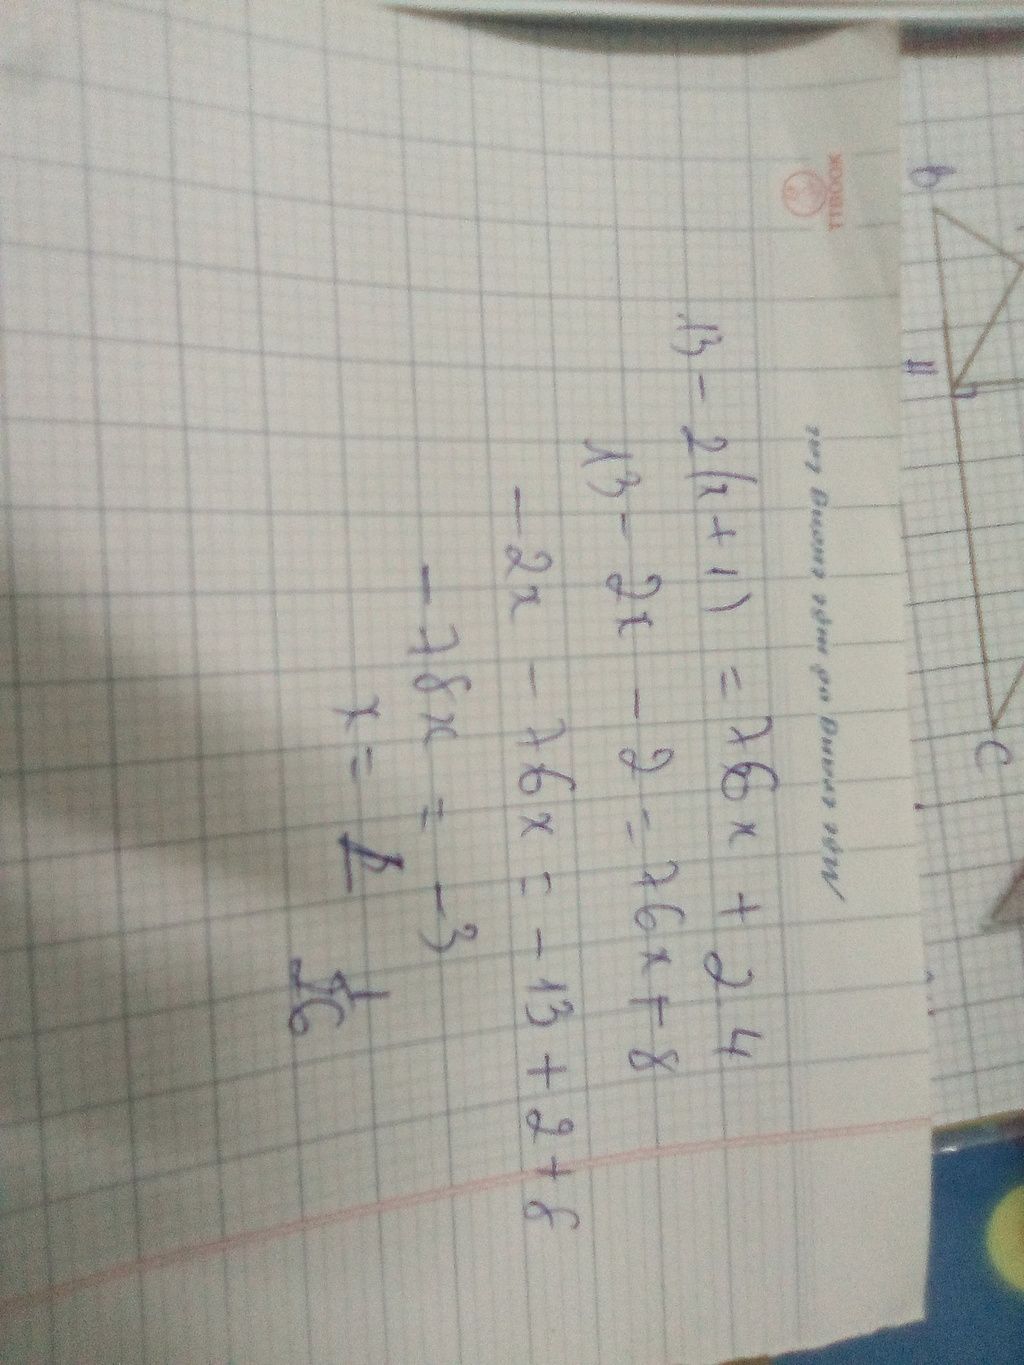 TTBOOK
B
H
C
13 - 2(x + 1) = 76x + 24
13 - 2x - 2 = 76x + 8
-2x - 76x = -13 + 2 + 8
-78x = -3
x =
1
26